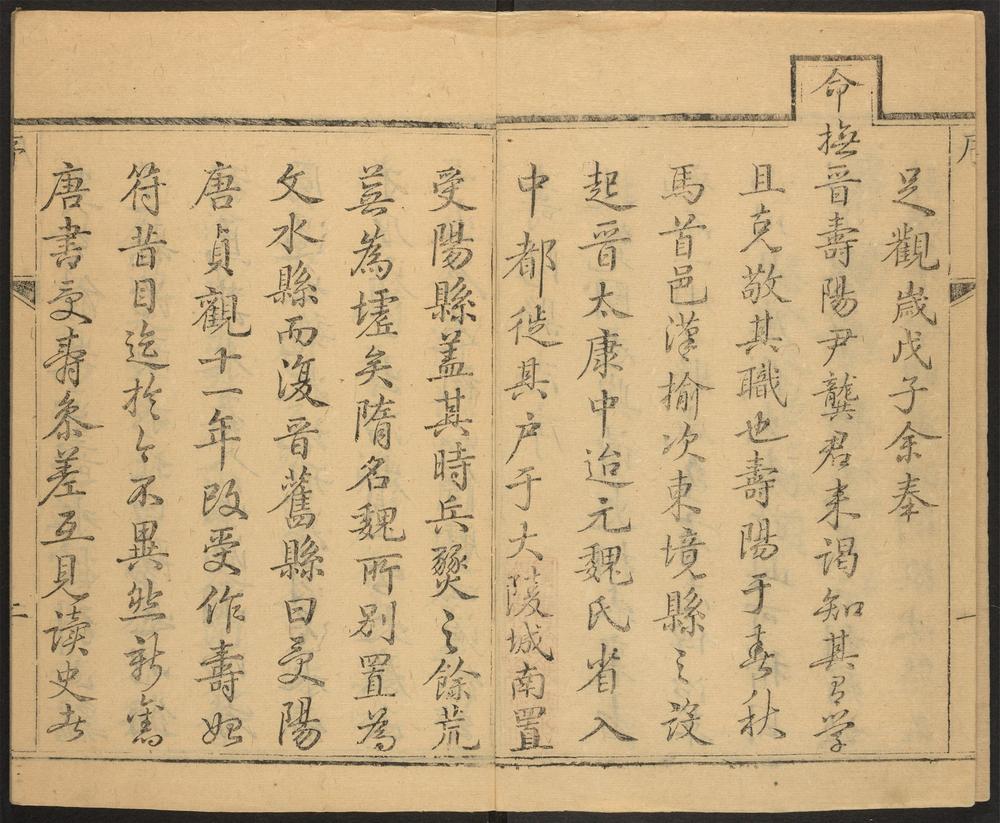 序
足觀歲戊子余奉
命撫晉壽陽尹龔君来謁知其有学
且克敬其職也壽陽于春秋
馬首邑漢揄次東境縣之設
起晉太康中迨元魏氏省入
中都徙其户于大陵城南置
一
受陽縣盖其時兵燹之餘荒
芜為墟矣隋名魏所别置為
文水縣而復晉舊縣曰受陽
唐貞觀十一年改受作壽始
符昔目迄於今不異然新舊
唐書受壽叅差互見读史者
序
二